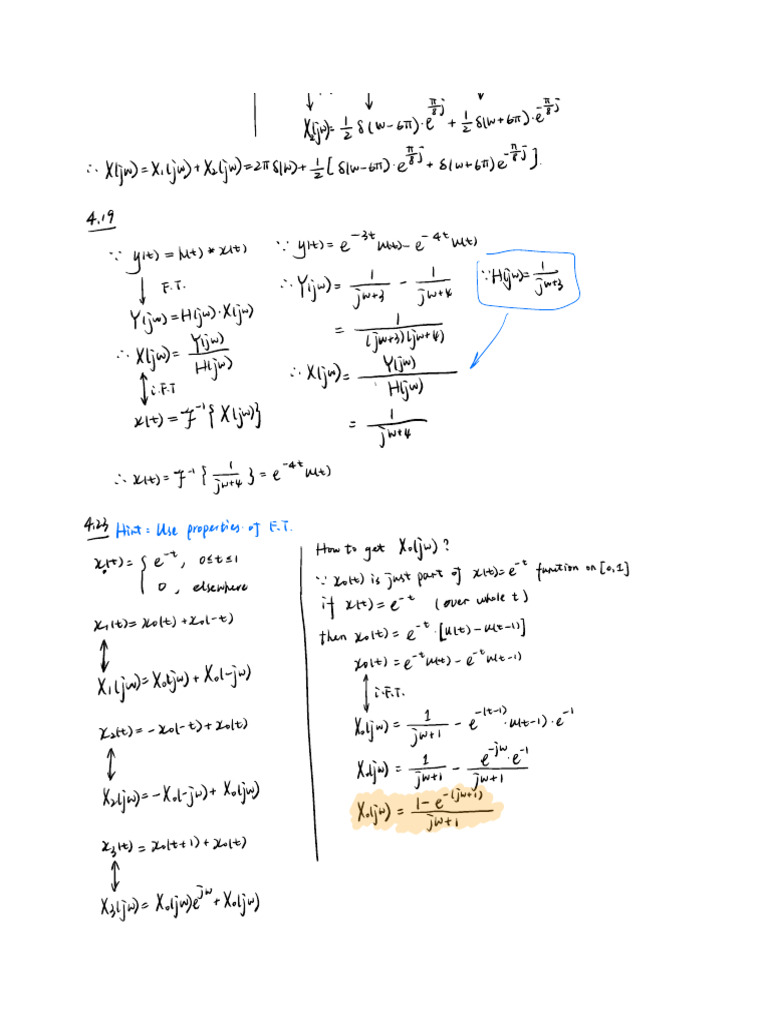 X₂(jω)=½ δ(ω-6π)·e^{π/8 j} + ½ δ(ω+6π)·e^{-π/8 j}
∴ X(jω)=X₁(jω)+X₂(jω)=2πδ(ω)+½[δ(ω-6π)·e^{π/8 j}+δ(ω+6π)e^{-π/8 j}].
4.19
∵ y(t)=h(t)*x(t)
↓ F.T.
Y(jω)=H(jω)·X(jω)
∴ X(jω)=Y(jω)/H(jω)
↕ i.F.T
x(t)=F⁻¹{X(jω)}
∵ y(t)=e^{-3t}u(t)-e^{-4t}u(t)
∴ Y(jω)=1/(jω+3) - 1/(jω+4)
=1/((jω+3)(jω+4))
∵ H(jω)=1/(jω+3)
∴ X(jω)=Y(jω)/H(jω)
=1/(jω+4)
∴ x(t)=F⁻¹{1/(jω+4)}=e^{-4t}u(t)
4.23 Hint: Use properties of F.T.
x₀(t)={e^{-t}, 0≤t≤1
0, elsewhere
x₁(t)=x₀(t)+x₀(-t)
↕
X₁(jω)=X₀(jω)+X₀(-jω)
x₂(t)=-x₀(-t)+x₀(t)
↕
X₂(jω)=-X₀(-jω)+X₀(jω)
x₃(t)=x₀(t+1)+x₀(t)
↕
X₃(jω)=X₀(jω)e^{jω}+X₀(jω)
How to get X₀(jω)?
∵ x₀(t) is just part of x(t)=e^{-t} function on [0,1]
if x(t)=e^{-t} (over whole t)
then x₀(t)=e^{-t}·[u(t)-u(t-1)]
x₀(t)=e^{-t}u(t)-e^{-t}u(t-1)
↕ i.F.T.
X₀(jω)=1/(jω+1) - e^{-(t-1)}·u(t-1)·e^{-1}
X₀(jω)=1/(jω+1) - (e^{-jω}·e^{-1})/(jω+1)
X₀(jω)=(1-e^{-(jω+1)})/(jω+1)